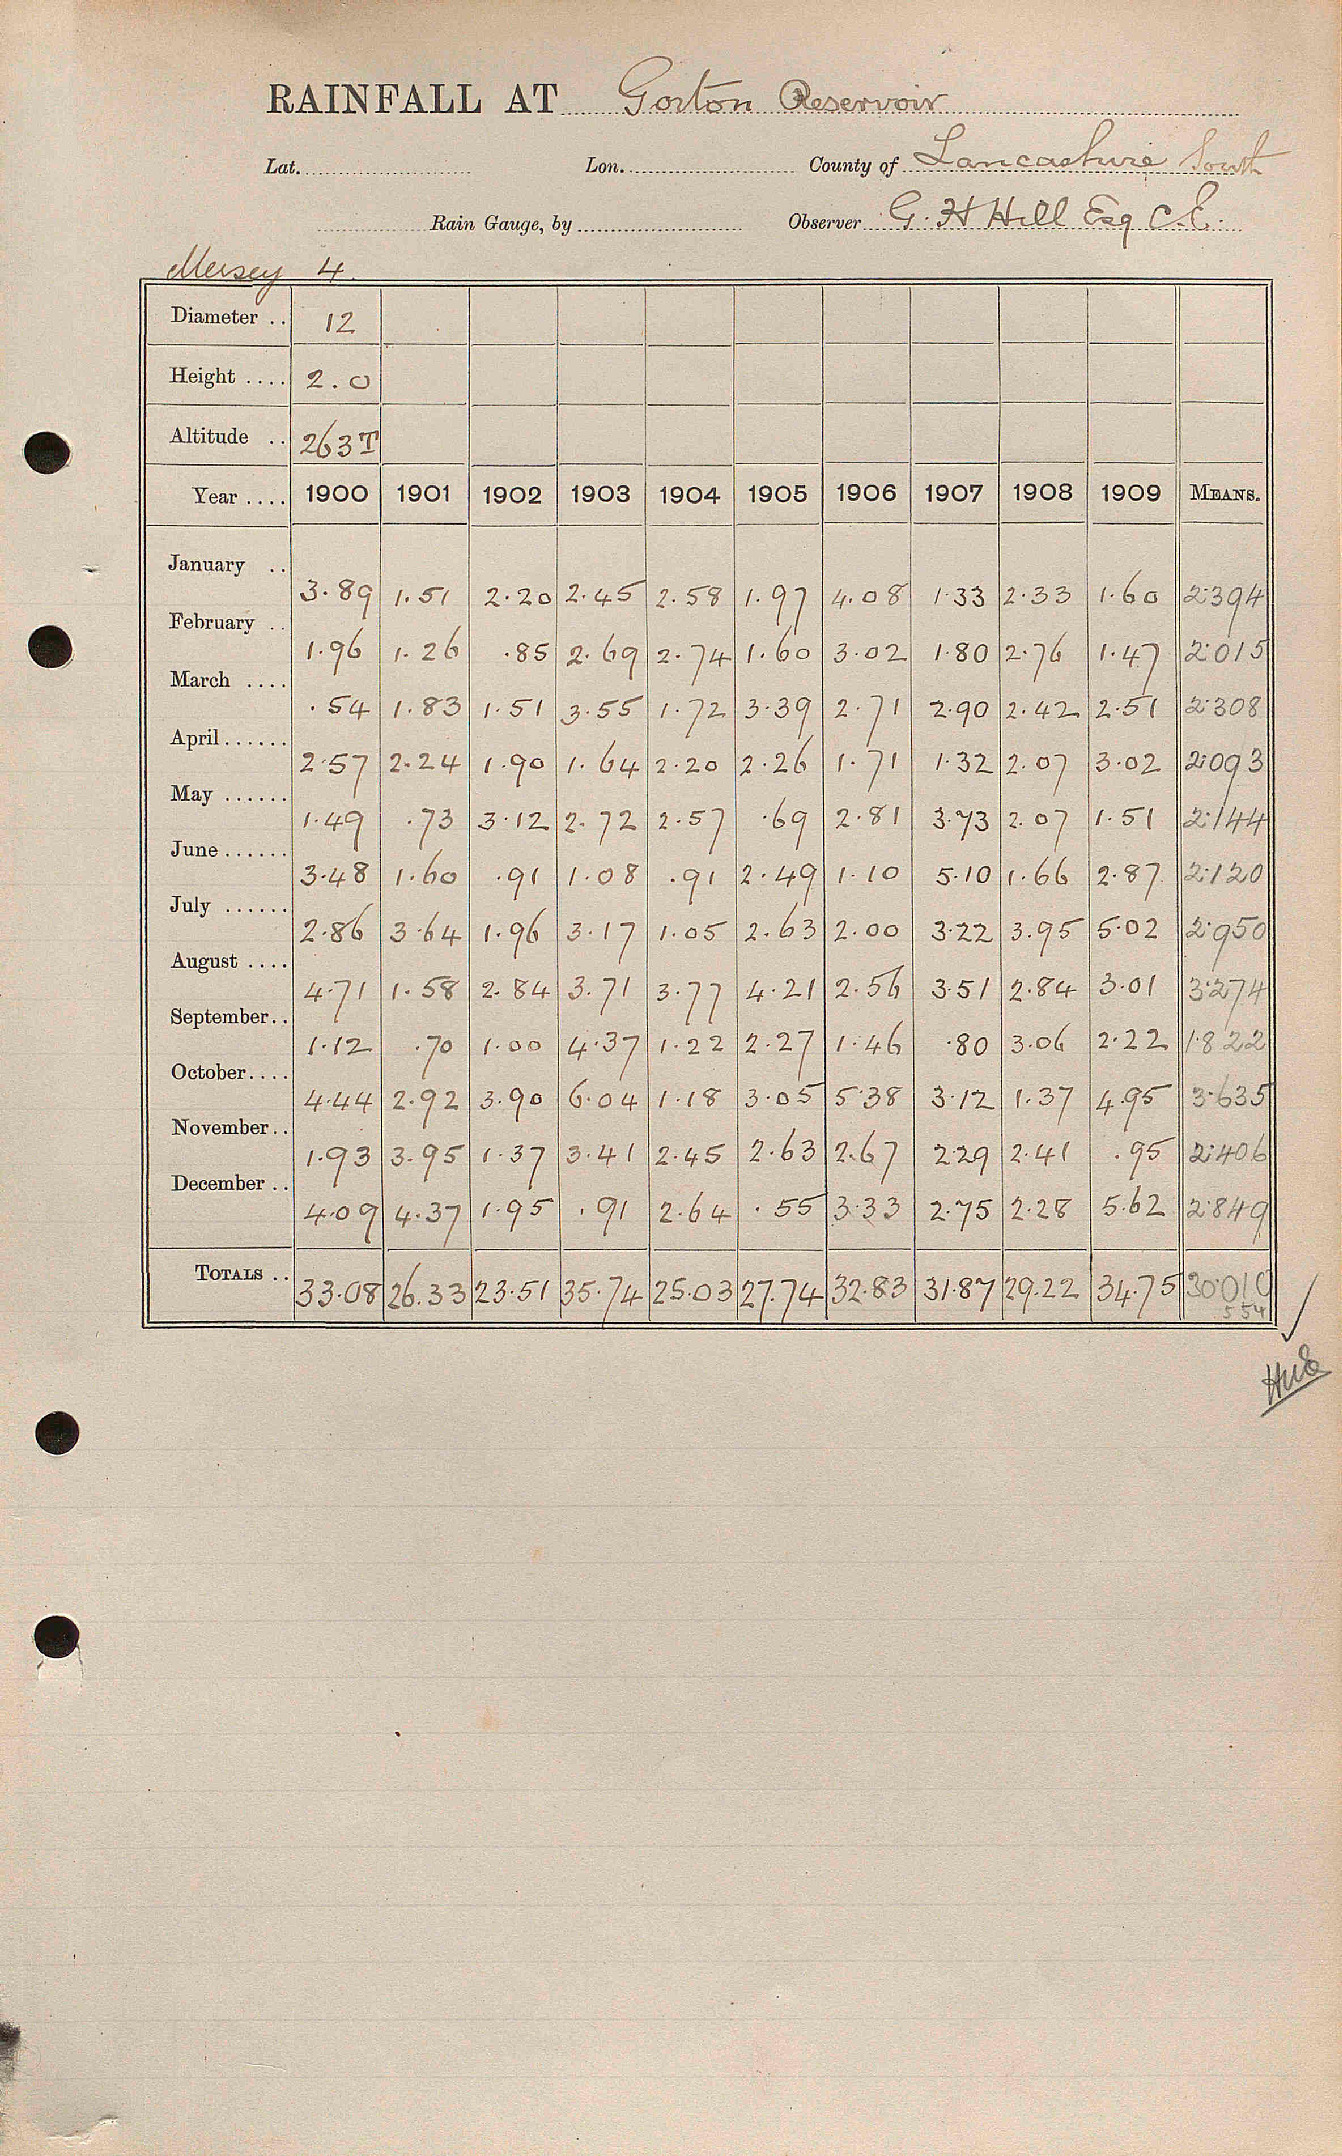 RAINFALL AT Gorton Reservoir
Lat. Lon. County of Lancashire South
Rain Gauge, by Observer G. H Hill Esq C.E.
Mersey 4.
Diameter .. 12
Height .... 2.0
Altitude .. 263T
Year .... 1900 1901 1902 1903 1904 1905 1906 1907 1908 1909 MEANS.
January .. 3.89 1.51 2.20 2.45 2.58 1.97 4.08 1.33 2.33 1.60 2.394
February .. 1.96 1.26 .85 2.69 2.74 1.60 3.02 1.80 2.76 1.47 2.015
March .... .54 1.83 1.51 3.55 1.72 3.39 2.71 2.90 2.42 2.51 2.308
April ...... 2.57 2.24 1.90 1.64 2.20 2.26 1.71 1.32 2.07 3.02 2.093
May ...... 1.49 .73 3.12 2.72 2.57 .69 2.81 3.73 2.07 1.51 2.144
June ...... 3.48 1.60 .91 1.08 .91 2.49 1.10 5.10 1.66 2.87 2.120
July ...... 2.86 3.64 1.96 3.17 1.05 2.63 2.00 3.22 3.95 5.02 2.950
August .... 4.71 1.58 2.84 3.71 3.77 4.21 2.56 3.51 2.84 3.01 3.274
September.. 1.12 .70 1.00 4.37 1.22 2.27 1.46 .80 3.06 2.22 1.822
October.... 4.44 2.92 3.90 6.04 1.18 3.05 5.38 3.12 1.37 4.95 3.635
November.. 1.93 3.95 1.37 3.41 2.45 2.63 2.67 229 2.41 .95 2.406
December .. 4.09 4.37 1.95 .91 2.64 .55 3.33 2.75 2.28 5.62 2.849
TOTALS .. 33.08 26.33 23.51 35.74 25.03 27.74 32.83 31.87 29.22 34.75 30.010
5 54